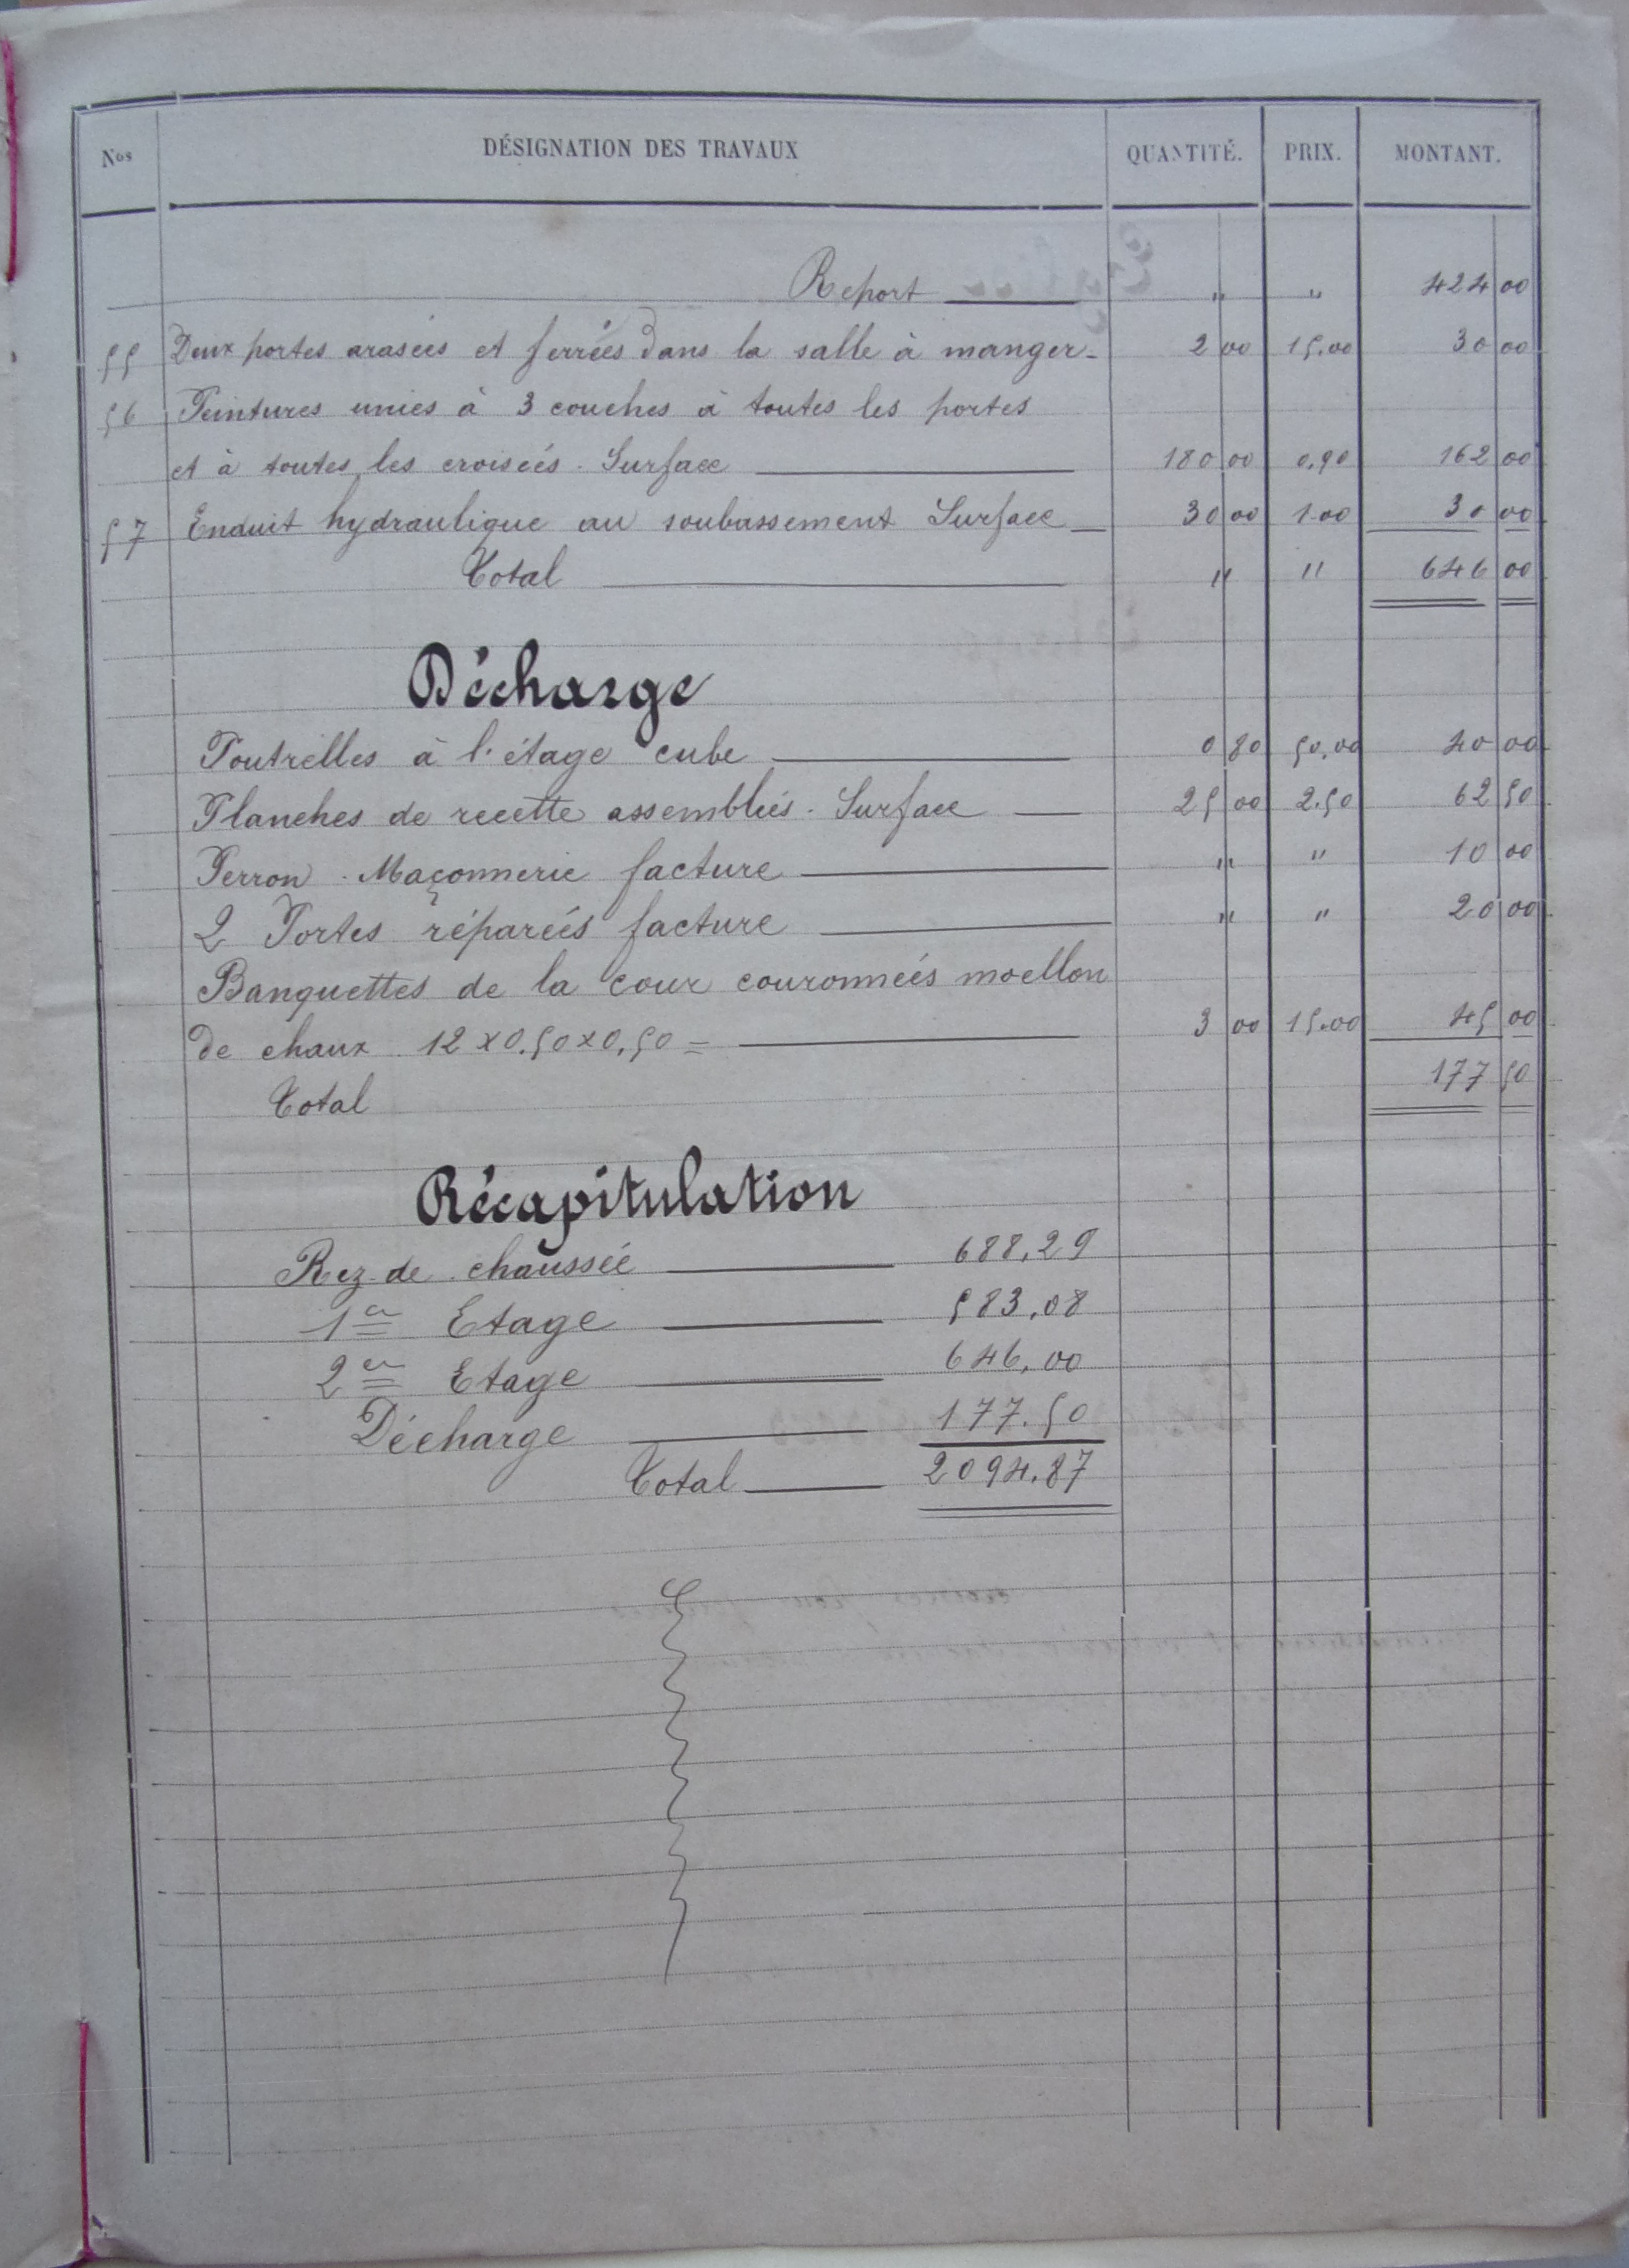 Nos DÉSIGNATION DES TRAVAUX QUANTITÉ. PRIX. MONTANT.
Report " " 424 00
55 Deux portes arasées et ferrées dans la salle à manger 2 00 15.00 30 00
56 Peintures unies à 3 couches à toutes les portes
et à toutes les croisées. Surface 180 00 0.90 162 00
57 Enduit hydraulique au soubassement Surface 30 00 1.00 30 00
Total " " 646 00
Décharge
Poutrelles à l'étage cube 0 80 50.00 40 00
Planches de recette assemblées. Surface 25 00 2.50 62 50
Perron. Maçonnerie facture " " 10 00
2 Portes réparées facture " " 20 00
Banquettes de la cour couronnées moellon
de chaux 12 x 0.50 x 0.50 = 3 00 15.00 45 00
Total 177 50
Récapitulation
Rez-de-chaussée 688.29
1er Etage 583.08
2er Etage 646.00
Décharge 177.50
Total 2094.87